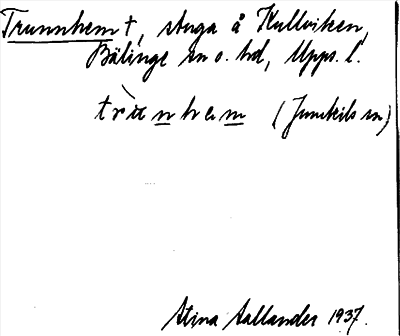 Trunnhem †, stuga å Kullviken,
Bälinge sn o. hd, Upps. l.
trùnhem (Jumkils sn)
Stina Sallander 1937.